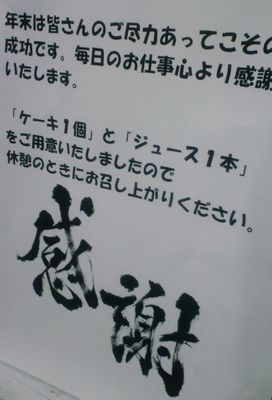 年末は皆さんのご尽力あってこその
成功です。毎日のお仕事心より感謝
いたします。
「ケーキ１個」と「ジュース１本」
をご用意いたしましたので
休憩のときにお召し上がりください。
感謝